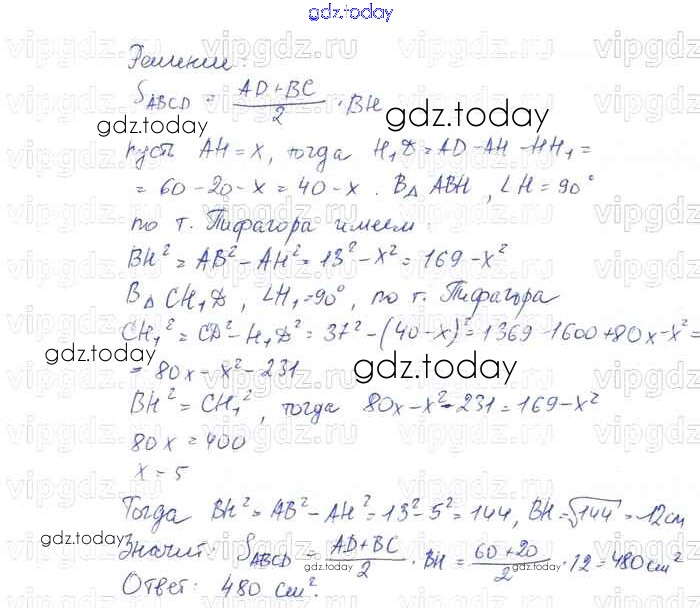 gdz.today
Решение:
S_ABCD = (AD+BC)/2 · BH
gdz.today
пусть AH = x, тогда H₁D = AD - AH - HH₁ =
= 60 - 20 - x = 40 - x. В △ ABH, ∠H = 90°
по т. Пифагора имеем:
BH² = AB² - AH² = 13² - x² = 169 - x²
В △ CH₁D, ∠H₁ = 90°, по т. Пифагора
CH₁² = CD² - H₁D² = 37² - (40-x)² = 1369 - 1600 + 80x - x² =
gdz.today gdz.today
= 80x - x² - 231
BH² = CH₁², тогда 80x - x² - 231 = 169 - x²
80x = 400
x = 5
Тогда BH² = AB² - AH² = 13² - 5² = 144, BH = √144 = 12cm
gdz.today
Значит: S_ABCD = (AD+BC)/2 · BH = (60+20)/2 · 12 = 480 cm²
gdz.today gdz.today
Ответ: 480 cm².
vipgdz.ru